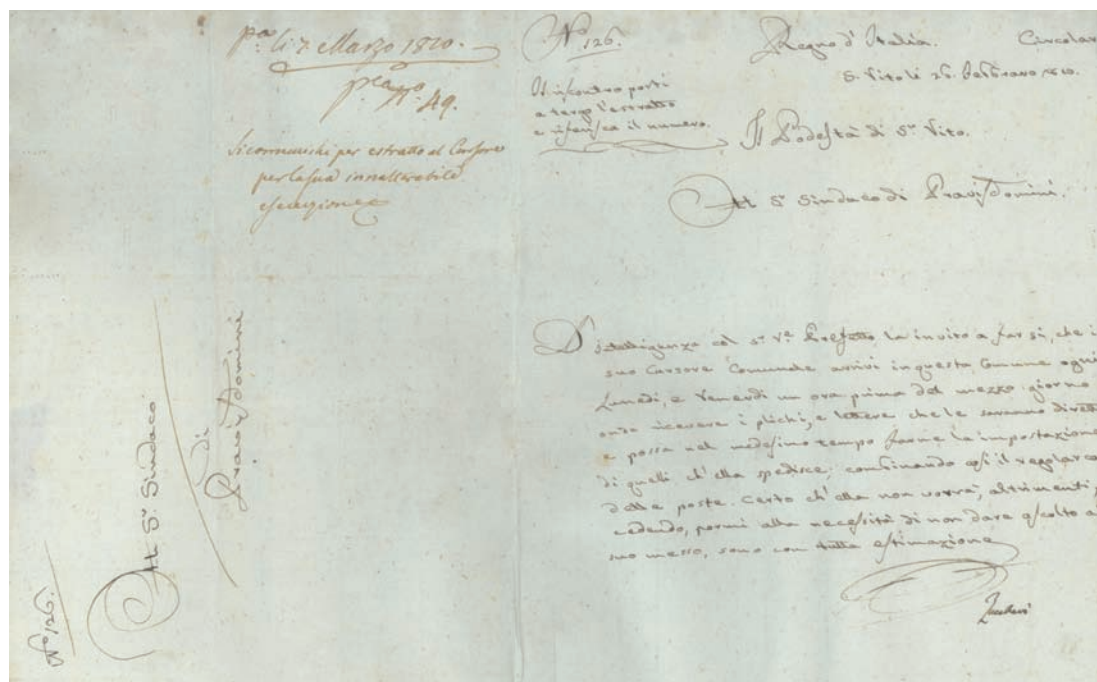 pta. li 7. Marzo 1810.
N.o 49.
Si comunichi per estratto al Cursore
per la sua innalterabile
esecuzione
N.o 126.
Il riscontro porti
a tergo l'estratto
e riferisca il numero.
Regno d'Italia. Circolar
S. Vito li 26. Febbraro 810.
Il Podestà di S.n Vito.
Al S.r Sindaco di Pravisdomini.
D'intelligenza col S.r V.e Prefetto la invito a far sì, che i
suo Cursore Comunale arrivi in questa Comune ogni
Lunedì, e Venerdì un ora prima del mezzo giorno
onde ricevere i plichi, e lettere che le saranno dirett
e possa nel medesimo tempo farne la impostazione
di quelli ch'ella spedisce; combinando così il regolare
delle poste. Certo ch'ella non vorrà, altrimenti
cedendo, pormi alla necessità di non dare ascolto a
suo messo, sono con tutta estimazione
Al S.r Sindaco
di
Pravisdomini
N.o 126.